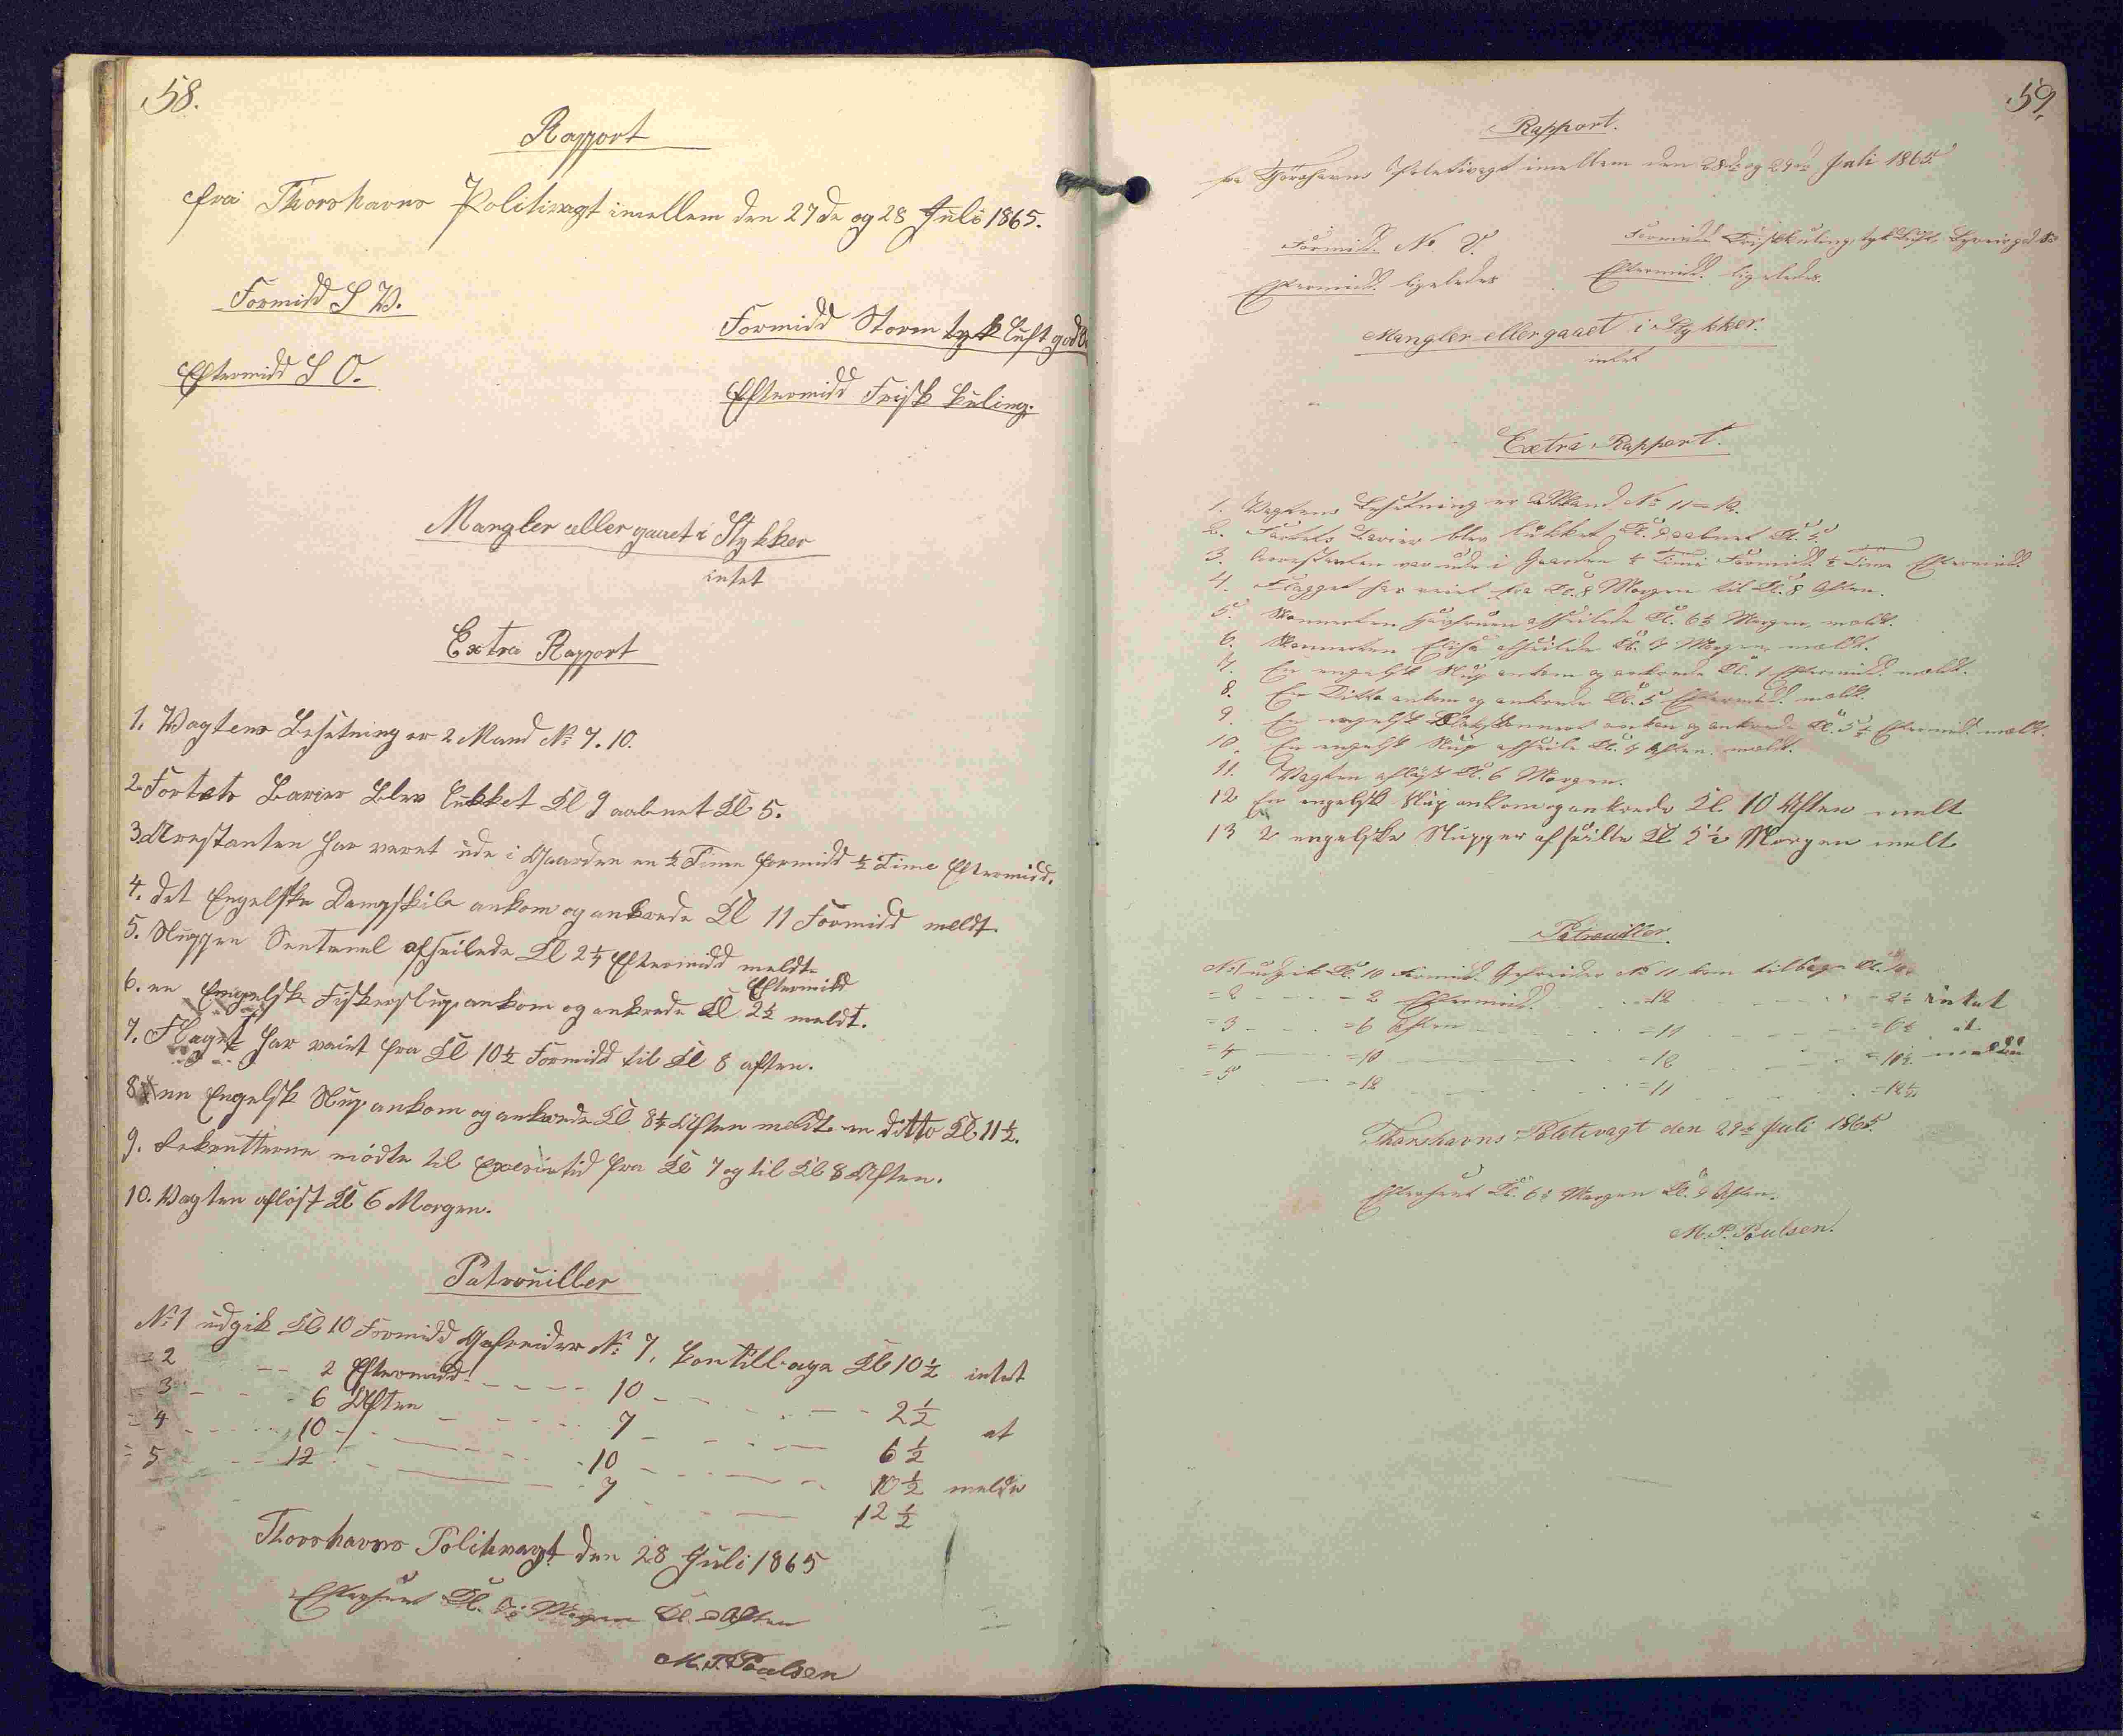 58.
Rapport
fra Thorshavns Politivagt imellem den 27de og 28 Juli 1865.
Formidd S V.
Formidd Storm tyk Luft god
Eftermidd S O.
Eftermidd Frisk Kuling.
Mangler eller gaaet i Stykker
intet
Extra Rapport
1. Vagtens Besetning er 2 Mand No 7. 10.
2. Fortets Barier Blev lukket Kl 9 aabnet Kl 5.
3 Arestanten har veret ude i Gaarden en ½ Time formidd ½ Time Eftermidd.
4. det Engelske Dampskib ankom og ankrede Kl 11 Formidd meldt.
5. Sluppen Sentenel afseilede Kl 2¼ Eftermidd meldt.
6. en Engelsk Fiskerslup ankom og ankrede Kl 2½ Eftermidd meldt.
7. Flaget har vaiet fra Kl 10½ Formidd til Kl 8 aften.
8 en Engelsk Slup ankom og ankrede Kl 8½ Aften meldt en ditto Kl 11½.
9. Rekrutterne mødte til Exersitid fra Kl 7 og til Kl 8 Aften.
10. Vagten afløst Kl 6 Morgen.
Patrouiller
No 1 udgik Kl 10 Formidd Gefreider No 7, kom tillbage Kl 10½ intet
= 2 - - 2 Eftermidd - - - - 10 - - - - 2½
= 3 - - 6 Aften - - - - 7 - - - - 6½ at
= 4 - - - 10 - - - - 10 - - - - 10½ melde
= 5 - - - 12 - - - - 7 - - - - 12½
Thorshavns Politivagt den 28 Juli 1865
Efterseet Kl. Morgen Kl. Aften
M. P. Poulsen
59.
Rapport.
fra Thorshavns Politivagt imellem den 28de og 29de Juli 1865
Formidd. N. O.
Formidd Frisk Kuling, tyk Luft,
Eftermidd. ligeledes
Eftermidd. ligeledes.
Mangler eller gaaet i Stykker.
intet
Extra Rapport.
1. Vagtens Besetning er 2 Mand No 11 = 12.
2. Fortets Barier blev lukket Kl. 9 aabnet Kl. 5.
3. Arrestanten var ude i Gaarden ½ Time Formidd. ½ Time Eftermidd.
4. Flagget har veiet fra Kl. 8 Morgen til Kl. 8 Aften.
5. Skonnerten afseilede Kl. 6½ Morgen, meldt.
6. Skonnerten Elisa afseilede Kl. 7 Morgen, meldt.
7. En engelsk Slup ankom og ankrede Kl. 1 Eftermidd. meldt.
8. En Ditto ankom og ankrede Kl. 5 Eftermidd. meldt.
9. En engelsk ankom og ankrede Kl. 5½ Eftermidd. meldt.
10. En engelsk Slup afseile Kl. 7 Aften, meldt.
11. Vagten afløst Kl. 6 Morgen.
12 En engelsk Slup ankom og ankrede Kl. 10 Aften melt
13 2 engelske Slupper afseilte Kl 5½ Morgen melt
Patrouiller.
No 1 udgik Kl. 10 Formidd. Gefreider No 11 kom tilbage Kl. 10½
= 2 - - - - 2 Eftermidd. - - = 12 - - - - = 2½ intet
= 3 - - - - = 6 Aften - - = 11 - - - - = 6½ at
= 4 - - = 10 - - = 12 - - - - = 10½ melde
= 5 - - = 12 - - = 11 - - - - = 12½
Thorshavns Politivagt den 29de Juli 1865.
Efterseet Kl. 6½ Morgen Kl. 9 Aften.
M. P. Poulsen.